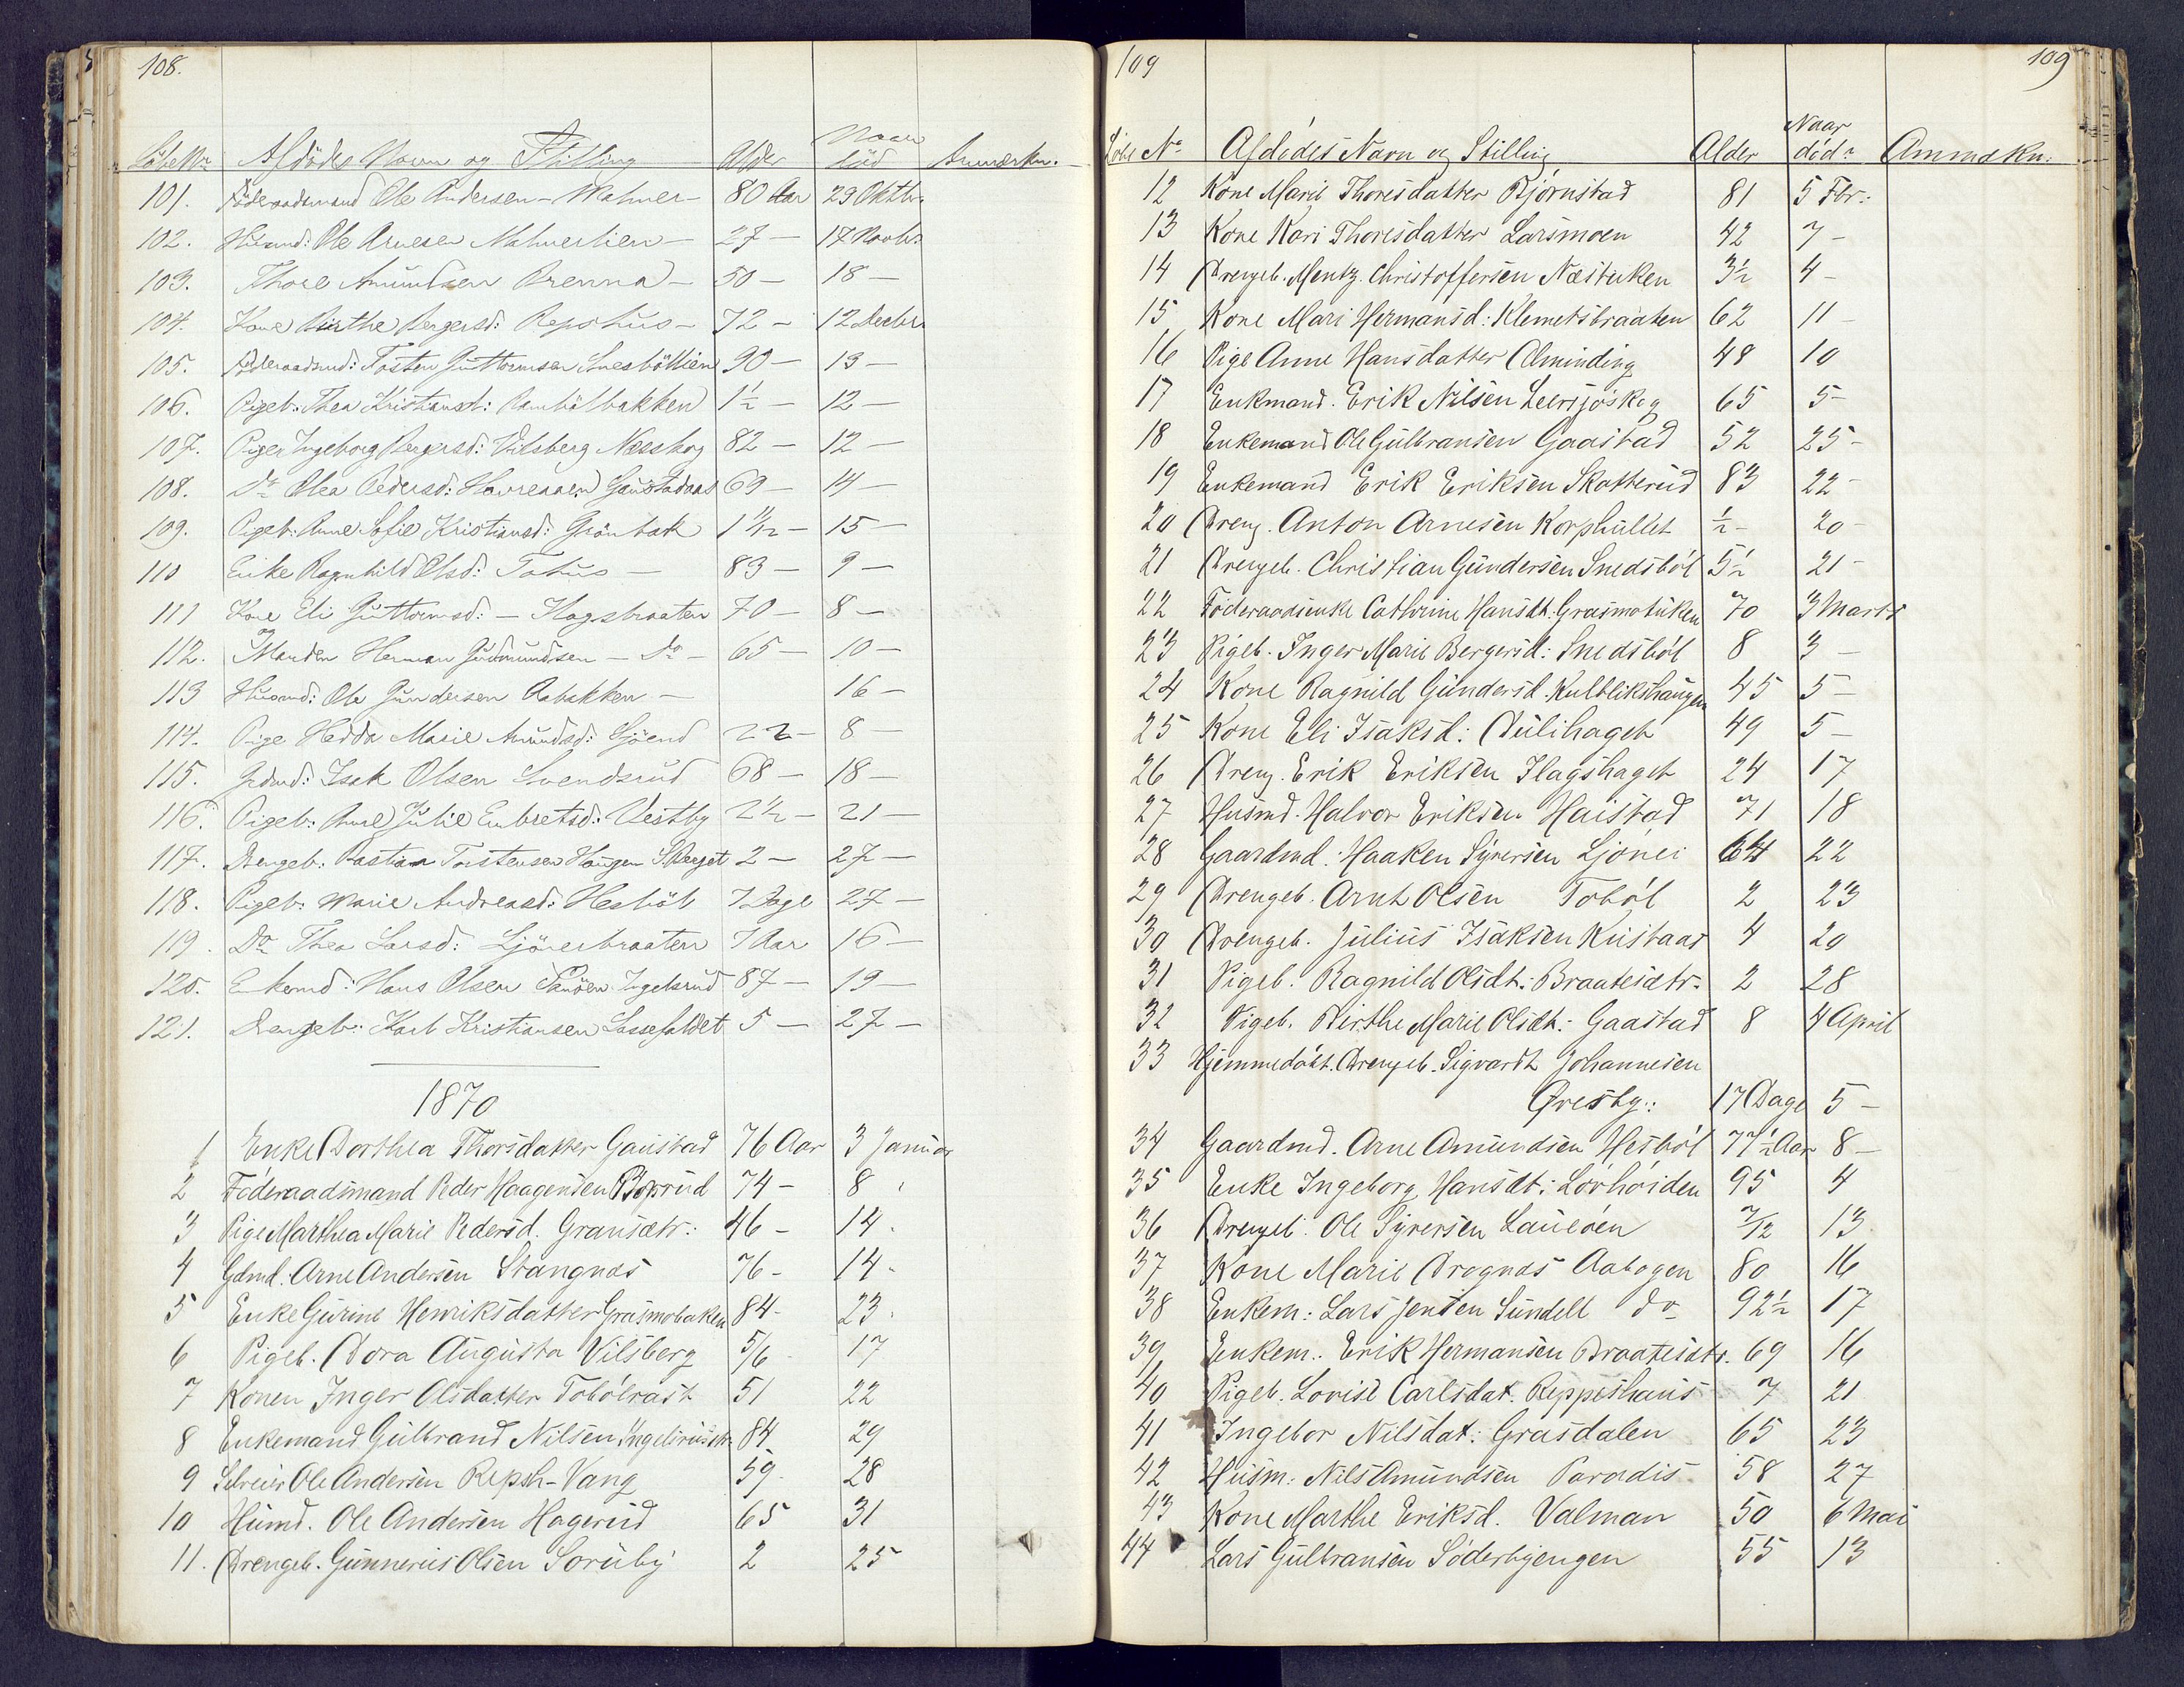 108.
LöbeNr Afdödes Navn og Stilling Alder Naar död Anmærkn.
101. Föderaadsmand Ole Andersen - Malmer - 80 Aar 29 Oktbr.
102. Husmd: Ole Arnesen Malmerlien - 27 - 17 Novbr.
103. Thore Amundsen Brenna - 50 - 18 -
104. Kone Birthe Bergersd: Repshus - 72 - 12 Decbr.
105. Föderaadsmd: Tosten Guttormsen Snesböllien 90 - 13 -
106. Pigeb: Thea Kristiansd: Ramhölbakken 1½ - 12 -
107. Pigen Ingeborg Bergersd: Vilsberg Næsskog 82 - 12 -
108. Do Olea Pedersd: Gaustadaas 69 - 14 -
109. Pigeb: Anne Sofie Kristiansd: Grönbak 1 11/12 - 15 -
110 Enke Ragnhild Olsd: Tohus - 83 - 9 -
111 Kone Eli Guttormsd: - Kogsbraaten 70 - 8 -
112. Manden Herman Gudmundsen - Do - 65 - 10 -
113 Husmd: Ole Gundersen Aabakken - 16 -
114. Pige Hedda Marie Amundsd: Sjöend 22 - 8 -
115. Grdmd: Isak Olsen Svendsrud 68 - 18 -
116. Pigeb: Anne Julie Embretsd: Vestby 2½ - 21 -
117. Drengeb: Bastian Torstensen Haugen 2 - 27 -
118. Pigeb: Marie Andreasd: Hesböl 7 Dage 27 -
119. Do Thea Larsd: Ljönerbraaten 7 Aar 16 -
120. Enkemd: Hans Olsen Ingelsrud 87 - 19 -
121. Drengeb: Karl Kristiansen Lassefaldet 5 - 27 -
1870
1 Enke Dorthea Thorsdatter Gaustad 76 Aar 3 Januar
2 Föderaadsmand Peder Haagensen Böprud 74 - 8
3 Pige Marthea Marie Pedersd. Gransætr: 46 - 14
4 Gdmd. Arne Andersen Stangnæs 76 - 14 -
5 Enke Gurine Henriksdatter Græsmobaken 84 - 23
6 Pigeb. Dora Augusta Vilsberg 5/6 - 17
7 Konen Inger Olsdatter Tobölrast 51 22
8 Enkemand Gulbrand Nilsen Ingelsrudstr. 84 29
9 Selveier Ole Andersen Repsh-Vang 59 - 28
10 Humd. Ole Andersen Hagerud 65 31
11. Drengeb. Gunnerius Olsen Soruby 2 25
109 109
Löbe No Afdödes Navn og Stilling Alder Naar död: Anmækn:
12 Kone Marie Thoresdatter Björnstad 81 5 Fbr:
13 Kone Kari Thoresdatter Larsmoen 42 7 -
14 Drengeb. Mentz Christoffersen Næstuken 3½ 4 -
15 Kone Mari Hermansd: Klemetsbraaten 62 11 -
16 Pige Anne Hansdatter Alminding 48 10
17 Enkmand. Erik Nilsen Leersjöskog 65 5 -
18 Enkemand Ole Gulbransen Gaastad 52 25 -
19 Enkemand Erik Eriksen Skotterud 83 22 -
20 Dreng. Anton Arnesen Korphullet ½ - 20 -
21 Drengeb. Christian Gundersen Snedsböl 5½ 21 -
22 Föderaadsenke Cathrine Hansdt. Græsmotuken 70 3 Marts
23 Pigeb. Inger Marie Bergersd: Snedsböl 8 3 -
24 Kone Ragnild Gundersd. Kulblikshaugen 45 5 -
25 Kone Eli Isaksd: Dulihaget 49 5 -
26 Dreng. Erik Eriksen Flagshaget 24 17
27 Husmd. Halvor Eriksen Haistad 71 18
28 Gaardmd: Haaken Syversen Ljönei 64 22
29 Drengeb. Arnt Olsen Toböl 2 23
30 Drengeb. Julius Isaksen Kustaas 4 20
31 Pigeb. Ragnild Olsdt: Braatesætr. 2 28
32 Pigeb. Birthe Marie Olsdt: Gaastad 8 4 April
33 Hjemmedöbt. Drengeb. Sigvardt Johannesen
Øvesby: 17 Dage 5 -
34 Gaardmd. Arne Amundsen Hesböl 77½ Aar 8 -
35 Enke Ingeborg Hansdt: Lövhöiden 95 4
36 Drengeb: Ole Syversen Laueöen 7/12 13
37 Kone Marie Dragnæs Aabogen 80 16
38 Enkem: Lars Jensen Sundell do 92½ 17
39 Enkem: Erik Hermansen Braatesætr. 69 16
40 Pigeb. Lovise Carlsdat. Reppeshaus 7 21
41 Ingebor Nilsdat: Græsdalen 65 23
42 Husm: Nils Amundsen Paradis 58 27
43 Kone Marthe Eriksd. Valman 50 6 Mai
44 Lars Gulbransen Söderbjengen 55 13